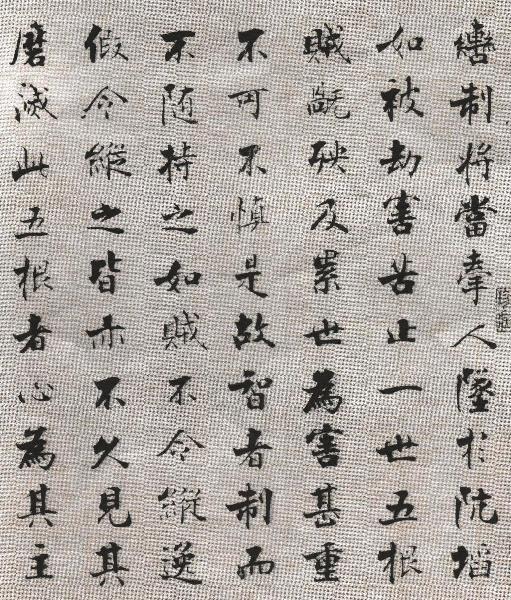 轡制將當牽人墜於阬埳
如被劫害苦止一世五根
賊旤殃及累世為害甚重
不可不慎是故智者制而
不随持之如賊不令縱逸
假令縱之皆亦不久見其
磨滅此五根者心為其主